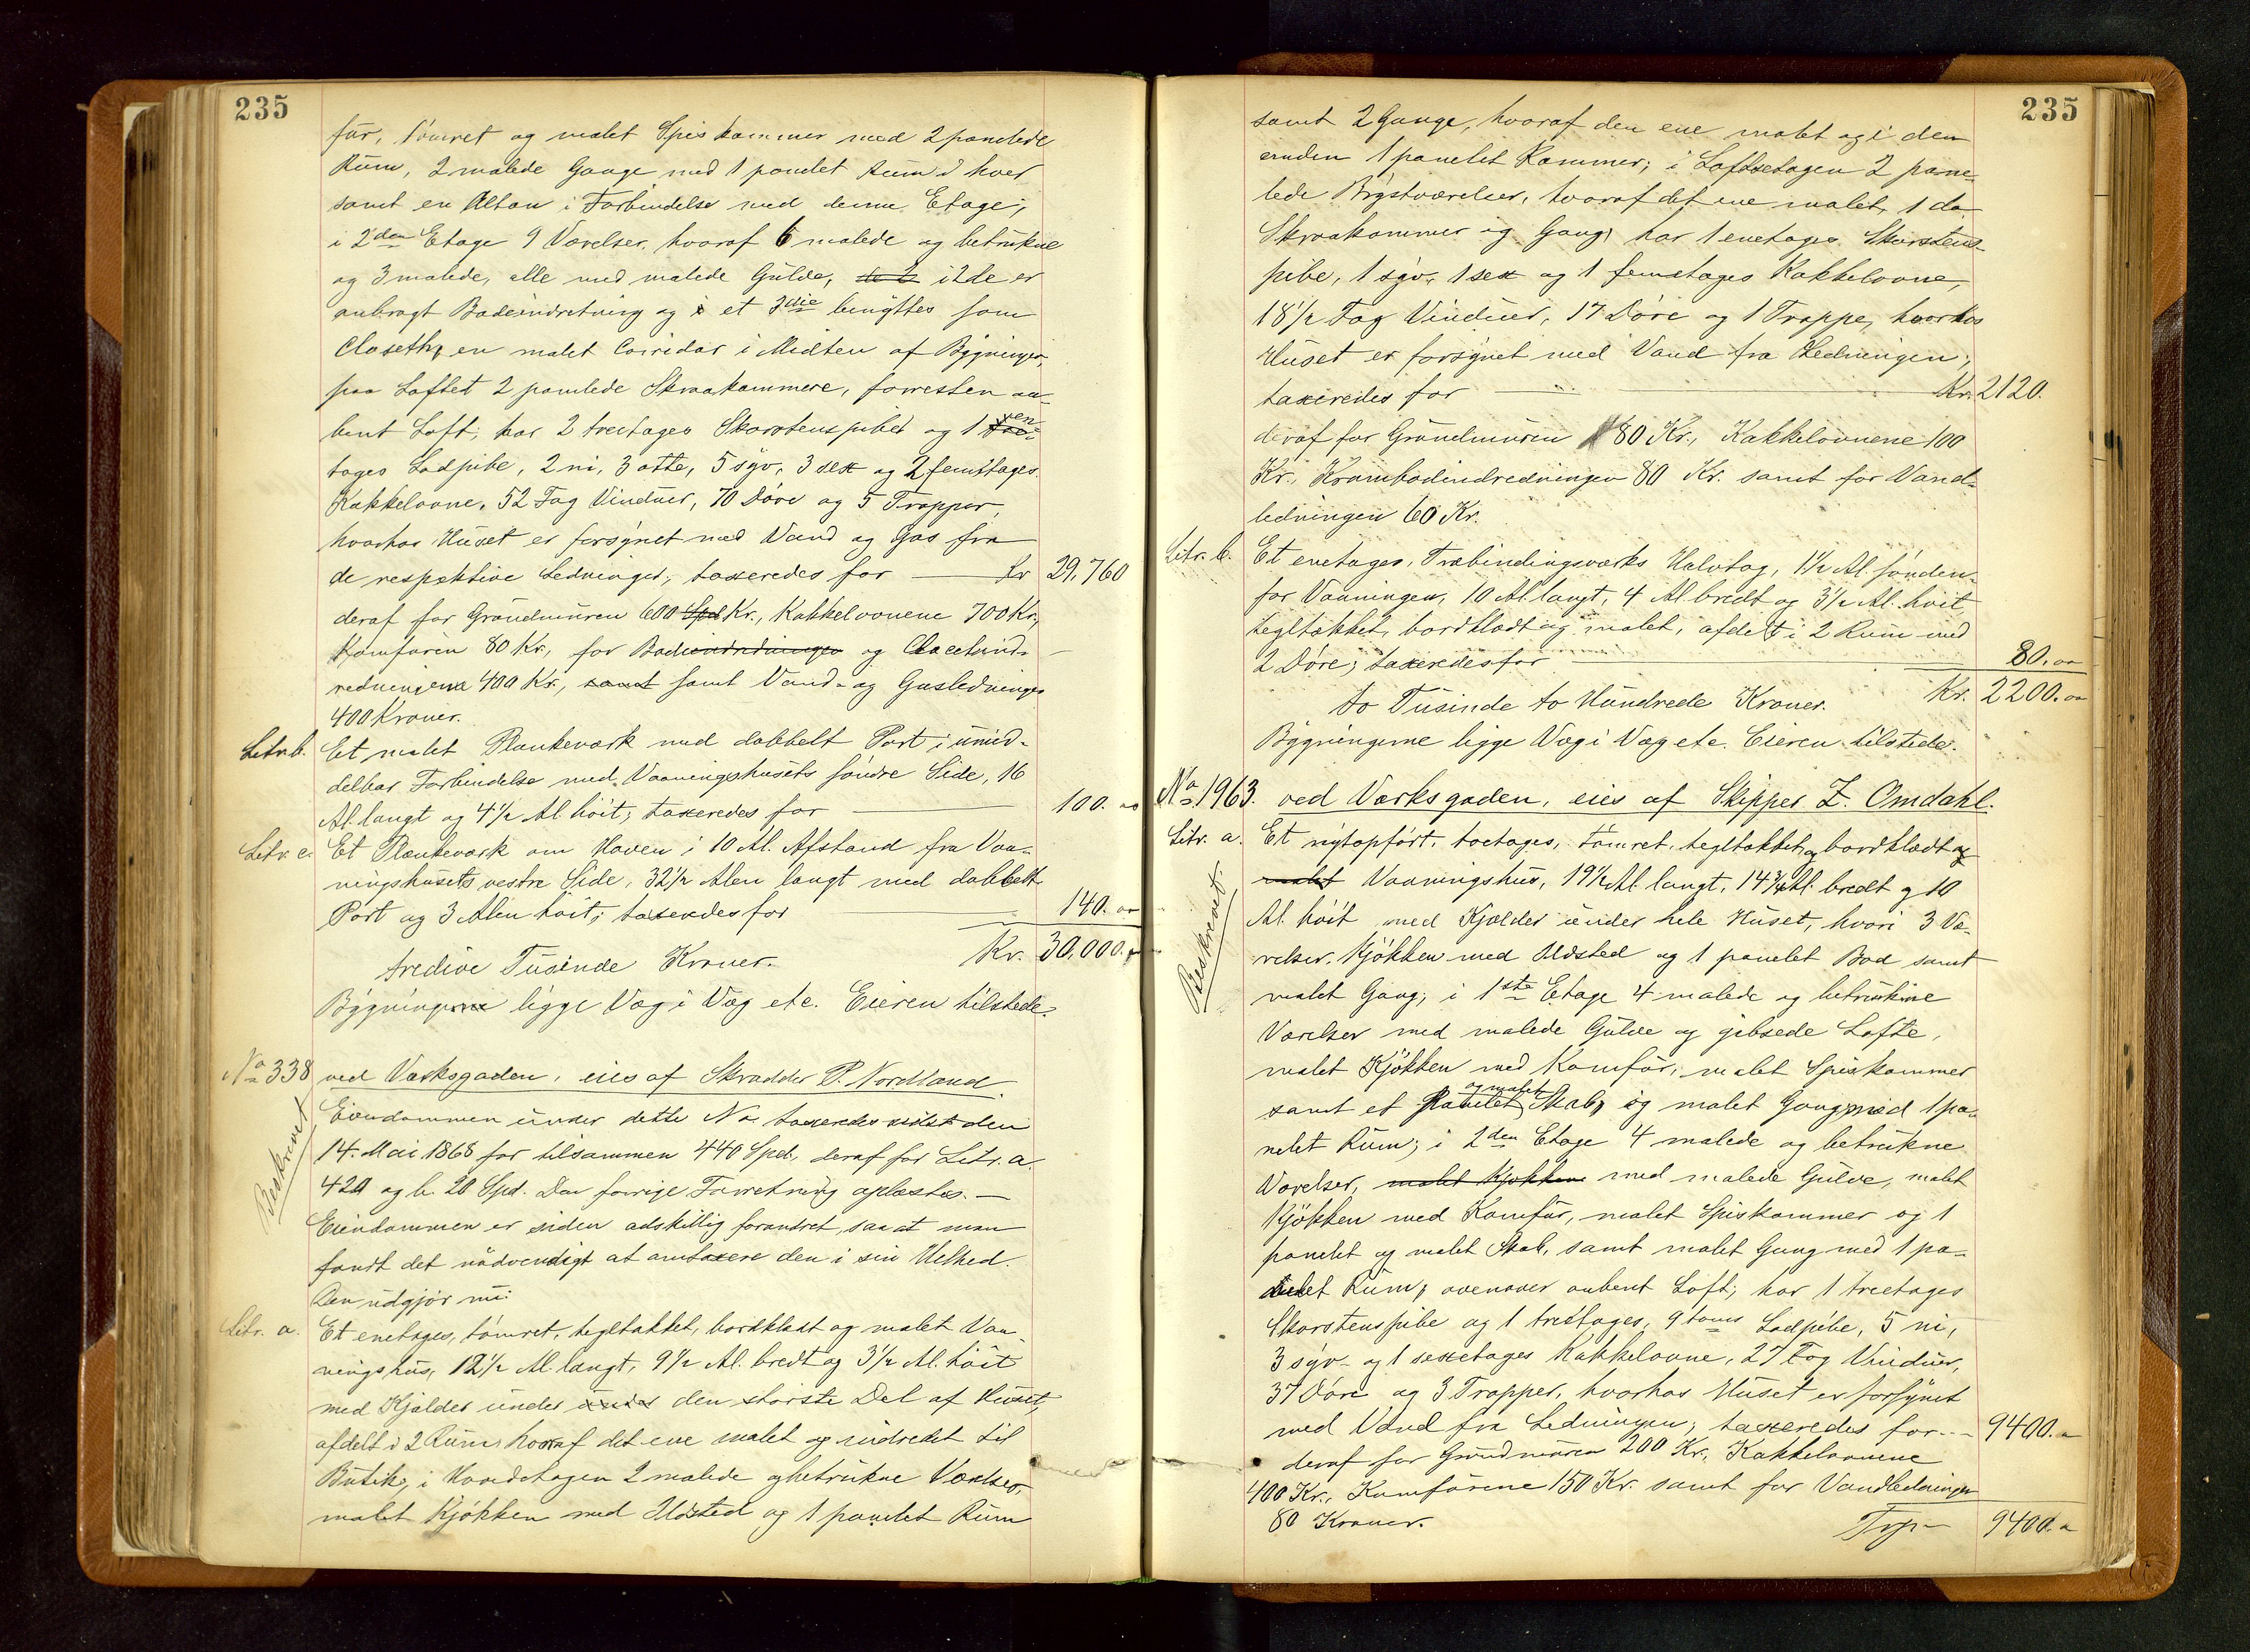 235
für, tömret og malet Spiskammer med 2 panelede
Rüm, 2 malede Gange med 1 panelet Rüm i hver
samt en Altan i Forbindelse med denne Etage;
i 2den Etage 9 Værelser, hvoraf 6 malede og betrükne
og 3 malede, alle med malede Gülve, i 2de er
anbragt Badeindretning og et 3die benyttes som
Closeth, en malet Corridor i Midten af Bygningen,
paa Loftet 2 panelede Skraakammere, forresten aa-
bent Loft; har 2 treetages Skorstenspiber og 1 een-
tages Lodpibe, 2 ni, 3 otte, 5 syv, 3 sex og 2 femetages
Kakkelovne, 52 Fag Vindüer, 70 Döre og 5 Trapper,
hvorhos Hüset er forsynet med Vand og Gas fra
de respektive Ledninger; taxeredes for Kr 29,760
deraf for Gründmüren 600 Spd Kr., Kakkelovnene 700 Kr.,
Komfüren 80 Kr., for Badeindredningen og Closetind-
redningerne 400 Kr., samt samt Vand- og Gasledninger
400 Kroner.
Litr. b. Et malet Plankeværk med dobbelt Port i ümid-
delbar Forbindelse med Vaaningshüsets söndre Side, 16
Al. langt og 4 1/2 Al höit; taxeredes for 100. "
Litr. c. Et Plankeværk om Haven i 10 Al. Afstand fra Vaa-
ningshüsets vestre Side, 32 1/2 Alen langt med dobbelt
Port og 3 Alen höit; taxeredes for 140. "
tredive Tüsinde Kroner. Kr. 30,000. "
Bygningerne ligge Væg i Væg etc. Eieren tilstede.
No 338 ved Værksgaden, eies af Skrædder P. Nordland.
Beskrevet
Eiendommen ünder dette No taxeredes sidst den
14. Mai 1868 for tilsammen 440 Spd., deraf for Litr. a.
420 og b. 20 Spd. Den forrige Forretning oplæstes. —
Eiendommen er siden adskillig forandret, saa at man
fandt det nödvendigt at omtaxere den i sin Helhed.
Den üdgjör nü:
Litr. a. Et enetages, tömret, tegltækket, bordklædt og malet Vaa-
ningshüs, 12 1/2 Al. langt, 9 1/2 Al. bredt og 3 1/2 Al. höit
med Kjælder ünder ünder den störste Del af Hüset,
afdelt i 2 Rüm, hvoraf det ene malet og indredet til
Bütik; i Hovedetagen 2 malede og betrükne Værelser,
malet Kjökken med Ildsted og 1 panelet Rüm
235
samt 2 Gange, hvoraf den ene malet og i den
anden 1 panelet Kammer; i Loftsetagen 2 pane-
lede Brystværelser, hvoraf det ene malet, 1 do
Skraakammer og Gang; har 1 enetages Skorstens-
pibe, 1 syv, 1 sex og 1 femetages Kakkelovne,
18 1/2 Fag Vindüer, 17 Döre og 1 Trappe, hvorhos
Hüset er forsynet med Vand fra Ledningen;
taxeredes for Kr. 2120.
deraf for Gründmüren 80 Kr., Kakkelovnene 100
Kr., Krambodindredningen 80 Kr. samt for Vand-
ledningen 60 Kr.
Litr. b. Et enetages, Træbindingsværks Halvtag, 1 1/2 Al. sönden-
for Vaaningen, 10 Al langt, 4 Al bredt og 3 1/2 Al. höit,
tegltækket, bordklædt og malet, afdelt i 2 Rüm med
2 Döre; taxeredes for 80. "
to Tüsinde to Hündrede Kroner. Kr. 2200. "
Bygningerne ligge Væg i Væg etc. Eieren tilstede.
No 1963. ved Værksgaden, eies af Skipper Z. Omdahl.
Beskrevet.
Litr. a. Et nyopfört, toetages, tömret, tegltækket og bordklædt og
malet Vaaningshüs, 19 1/2 Al. langt, 14 3/4 Al. bredt og 10
Al. höit med Kjælder ünder hele Hüset, hvori 3 Væ-
relser, Kjökken med Ildsted og 1 panelet Bod samt
malet Gang; i 1ste Etage 4 malede og betrükne
Værelser med malede Gülve og gibsede Lofte,
malet Kjökken med Komfür, malet Spiskammer
samt et panelet og malet Skab, og malet Gang med 1 pa-
nelet Rüm; i 2den Etage 4 malede og betrükne
Værelser, malet Kjökken med malede Gülve, malet
Kjökken med Komfür, malet Spiskammer og 1
panelet og malet Skab, samt malet Gang med 1 pa-
nelet Rüm, ovenover aabent Loft; har 1 treetages
Skorstenspibe og 1 treetages, 9 toms Lodpibe, 5 ni,
3 syv- og 1 sexetages Kakkelovne, 27 Fag Vindüer,
37 Döre og 3 Trapper, hvorhos Hüset er forsynet
med Vand fra Ledningen; taxeredes for 9400. "
deraf for Gründmüren 200 Kr., Kakkelovnene
400 Kr., Komfürene 150 Kr. samt for Vandledningen
80 Kroner. 9400. "